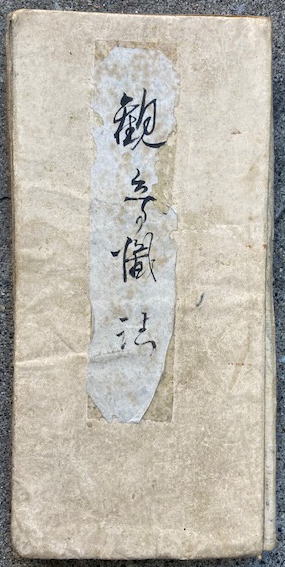 観音懺法